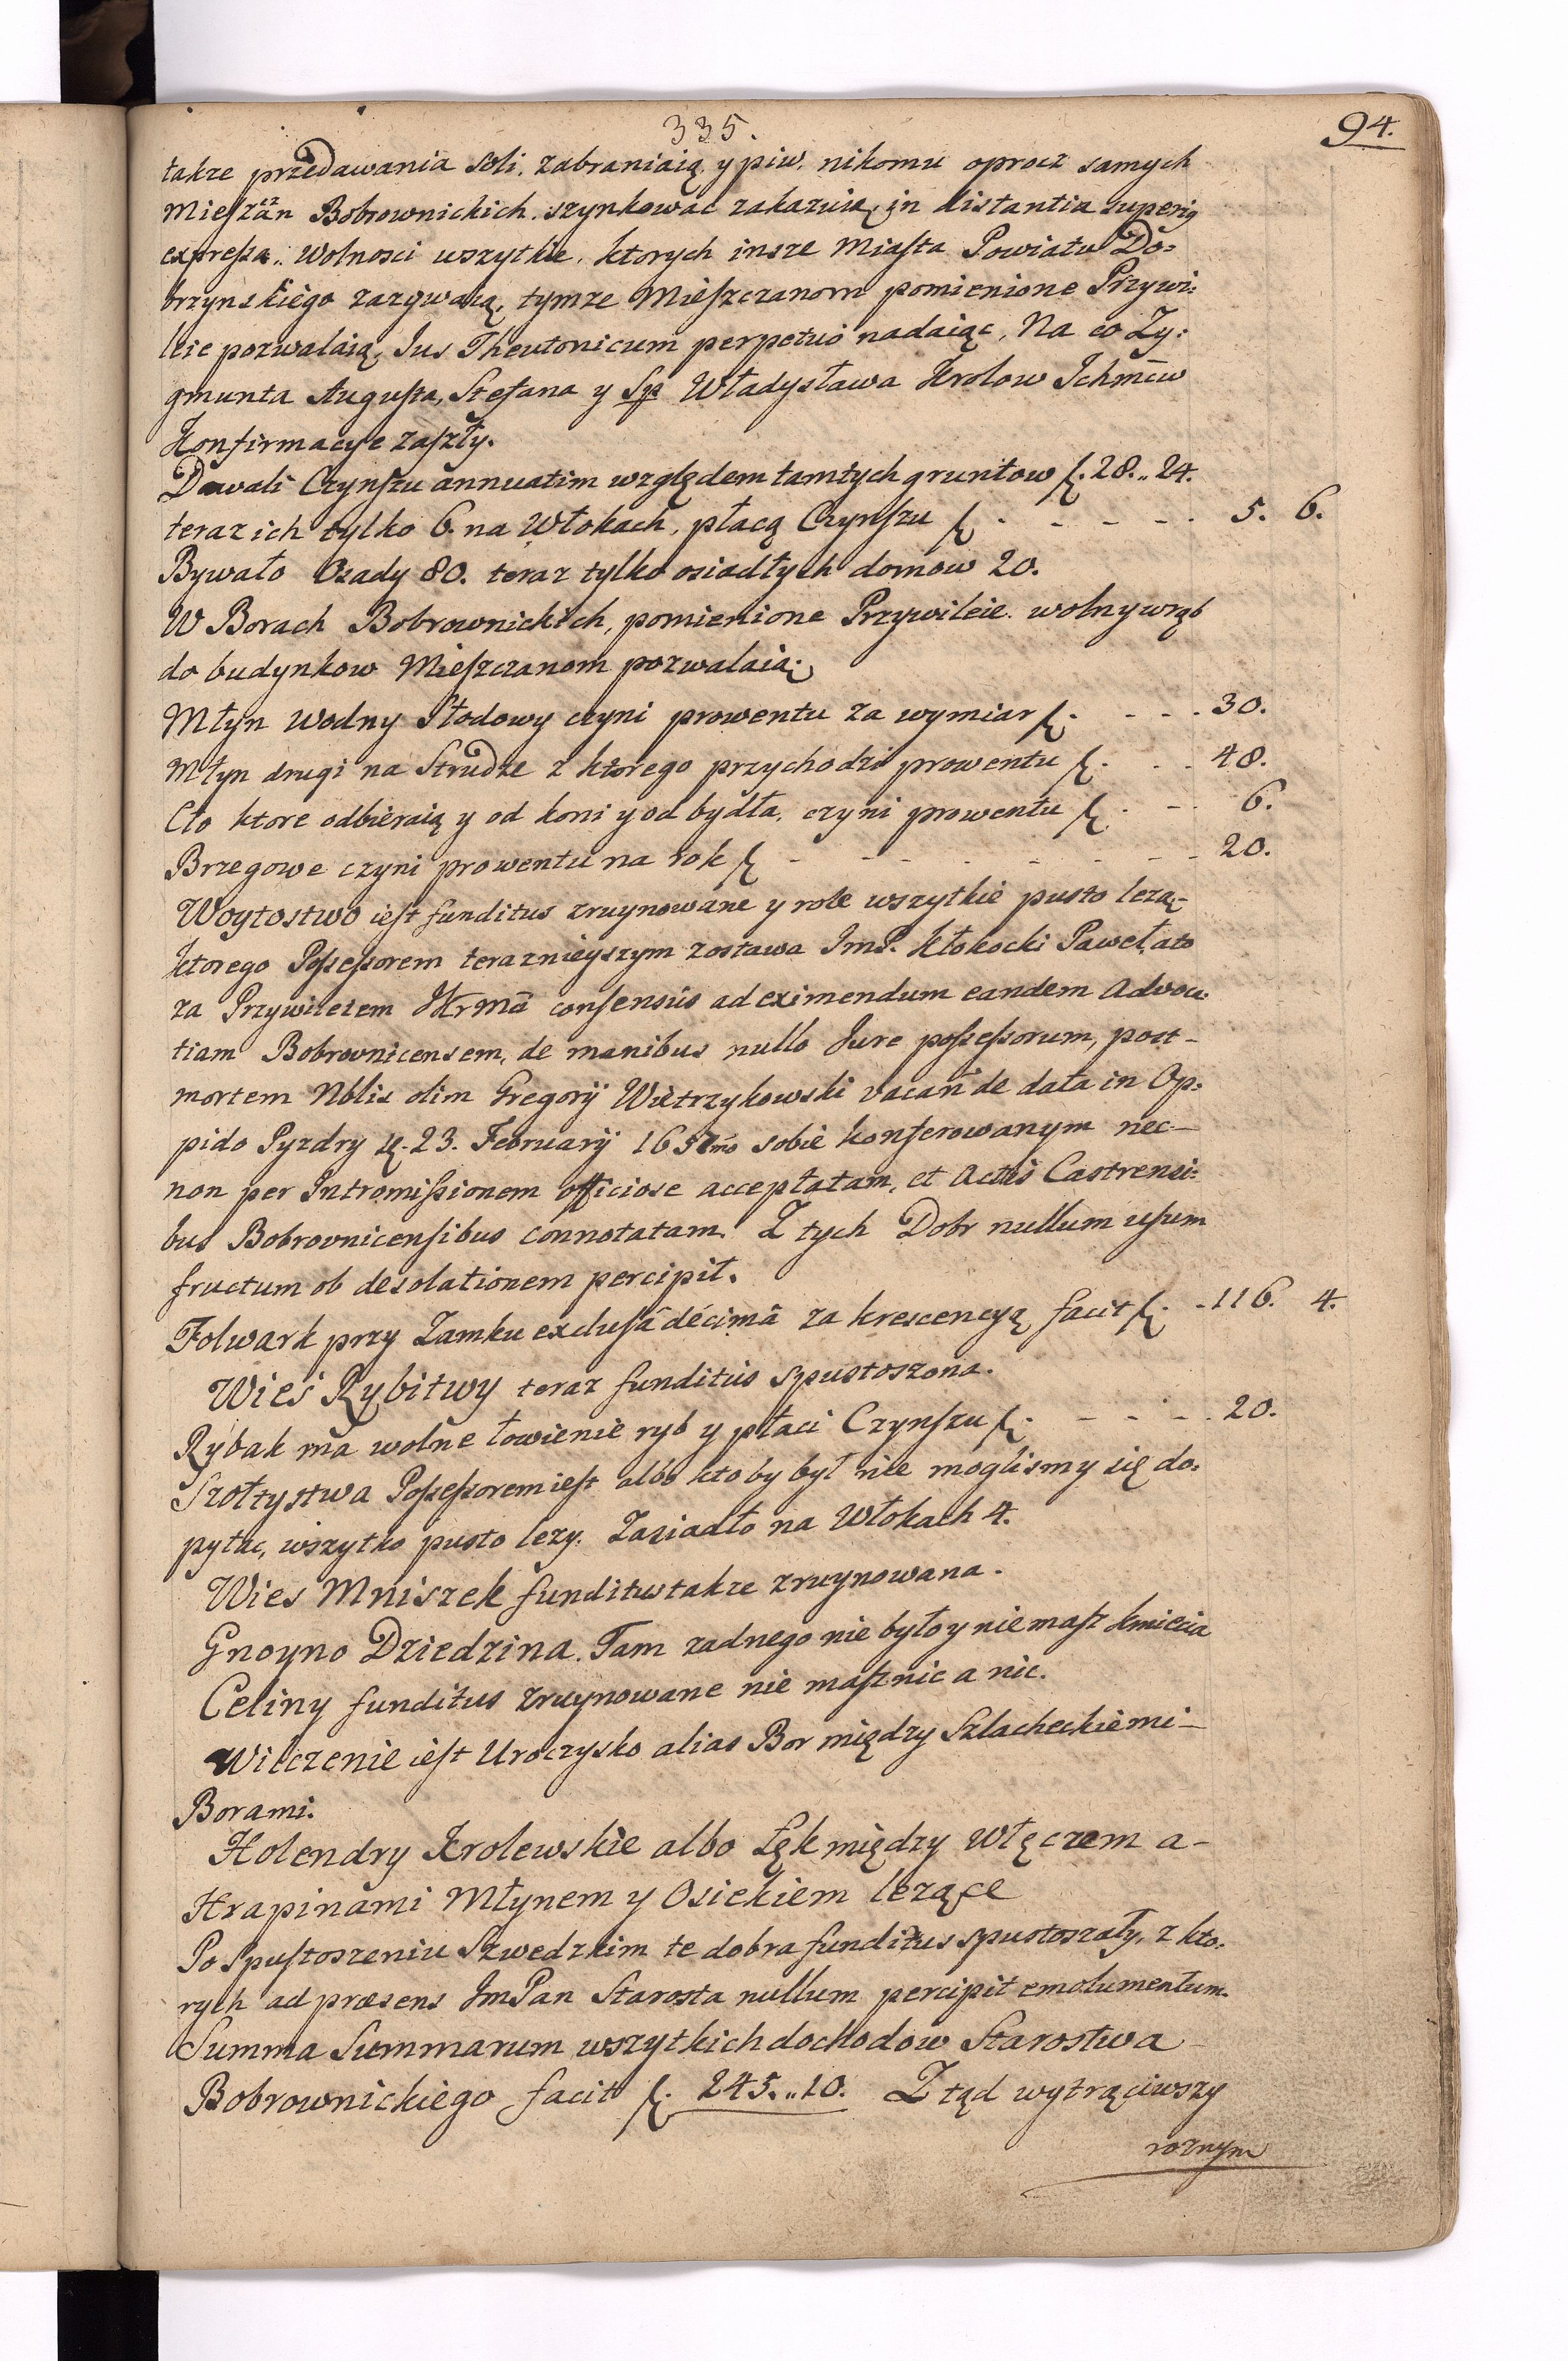 335.
94.
takze przedawania soli, zabraniaią y piw, nikomu oprocz samych
Mieszczan Bobrownickich szynkowac zakazuią, in distantia superiq
expressa. Wolnosci wszytkie, ktorych insze Miasta Powiatu Do-
brzynskiego zazywaią, tymze Mieszczanom pomienione Przywi-
leie pozwalaią, Jus Theutonicum perpetuo nadaiąc, Na co Zy-
gmunta Augusta, Stefana y Sp Władysława Krolow Ichmciw
Konfirmacye zaszły.
Dawali Czynszu annuatim względem tamtych gruntow f. 28..24.
teraz ich tylko 6. na Włokach, płacą Czynszu f. - - - - 5. 6.
Bywało Osady 80. teraz tylko osiadłych domow 20.
W Borach Bobrownickich, pomienione Przywileie wolny wrąb
do budynkow Mieszczanom pozwalaią.
Młyn Wodny Słodowy czyni prowentu za wymiar f. - - - 30.
Młyn drugi na Strudze z ktorego przychodzi prowentu f. - - 48.
Cło ktore odbieraią y od koni y od bydła, czyni prowentu f. - - 6.
Brzegowe czyni prowentu na rok f. - - - - - - - - 20.
Woytostwo iest funditus zruynowane y role wszytkie pusto lezą-
ktorego Possessorem teraznieyszym zostawa ImP. Kłokocki Paweł, a to
za Przywilejem JKrMā consensūs ad eximendum eandem Advoca-
tiam Bobrovnicensem, de manibus nullo Jure possessorum, post-
mortem Nblis olim Gregorij Wietrzykowski vacan̄ de data in Op-
pido Pyzdry d. 23. Februarij 1657mo sobie konferowanym nec-
non per Intromissionem officiose acceptatam, et Actis Castrensi-
bus Bobrovnicensibus connotatam. Z tych Dobr nullum usum
fructum ob desolationem percipit.
Folwark przy Zamku exclusâ décimâ za krescencyą facit f. - 116. 4.
Wieś Rybitwy teraz funditus spustoszona.
Rybak ma wolne łowienie ryb y płaci Czynszu f. - - - - 20.
Szołtystwa Possessorem iest albo kto by był nie moglismy się do-
pytac, wszytko pusto lezy. Zasiadło na Włokach 4.
Wies Mniszek funditus takze zruynowana.
Gnoyno Dziedzina. Tam zadnego nie było y nie masz kmiecia
Celiny funditus zruynowane nie masz nic a nic.
Wilczenie iest Uroczysko alias Bor między Szlacheckiemi-
Borami.
Holendry Krolewskie albo Łęk między Włęczem a-
Krapinami Młynem y Osiekiem lezące
Po Spustoszeniu Szwedzkim te dobra funditus spustoszały, z kto-
rych ad præsens ImPan Starosta nullum percipit emolumentum.
Summa Summarum wszytkich dochodow Starostwa
Bobrownickiego facit f. 245..10. Z tąd wytrąciwszy
roznym